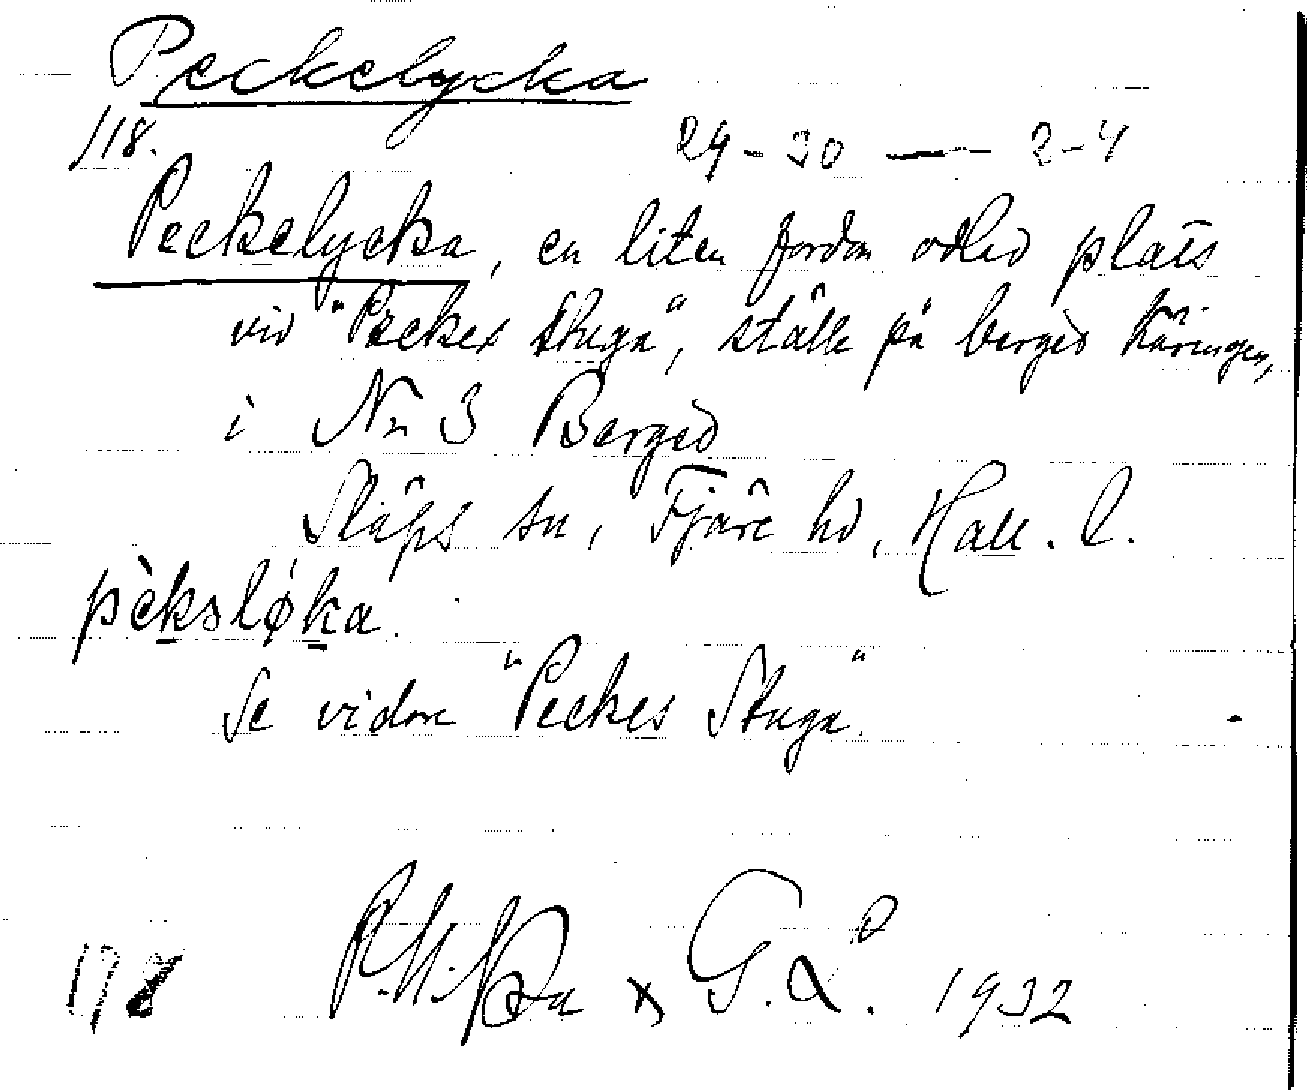 Peckelycka
118.
24-30 — 2-4
Peckelycka, en liten fordom odlad plats
vid "Peckes Stuga", ställe på berget Käringen,
i Nr 3 Berged
Släps sn, Fjäre hd, Hall. l.
pèksløka.
Se vidare "Peckes Stuga".
178
G. Å. 1932